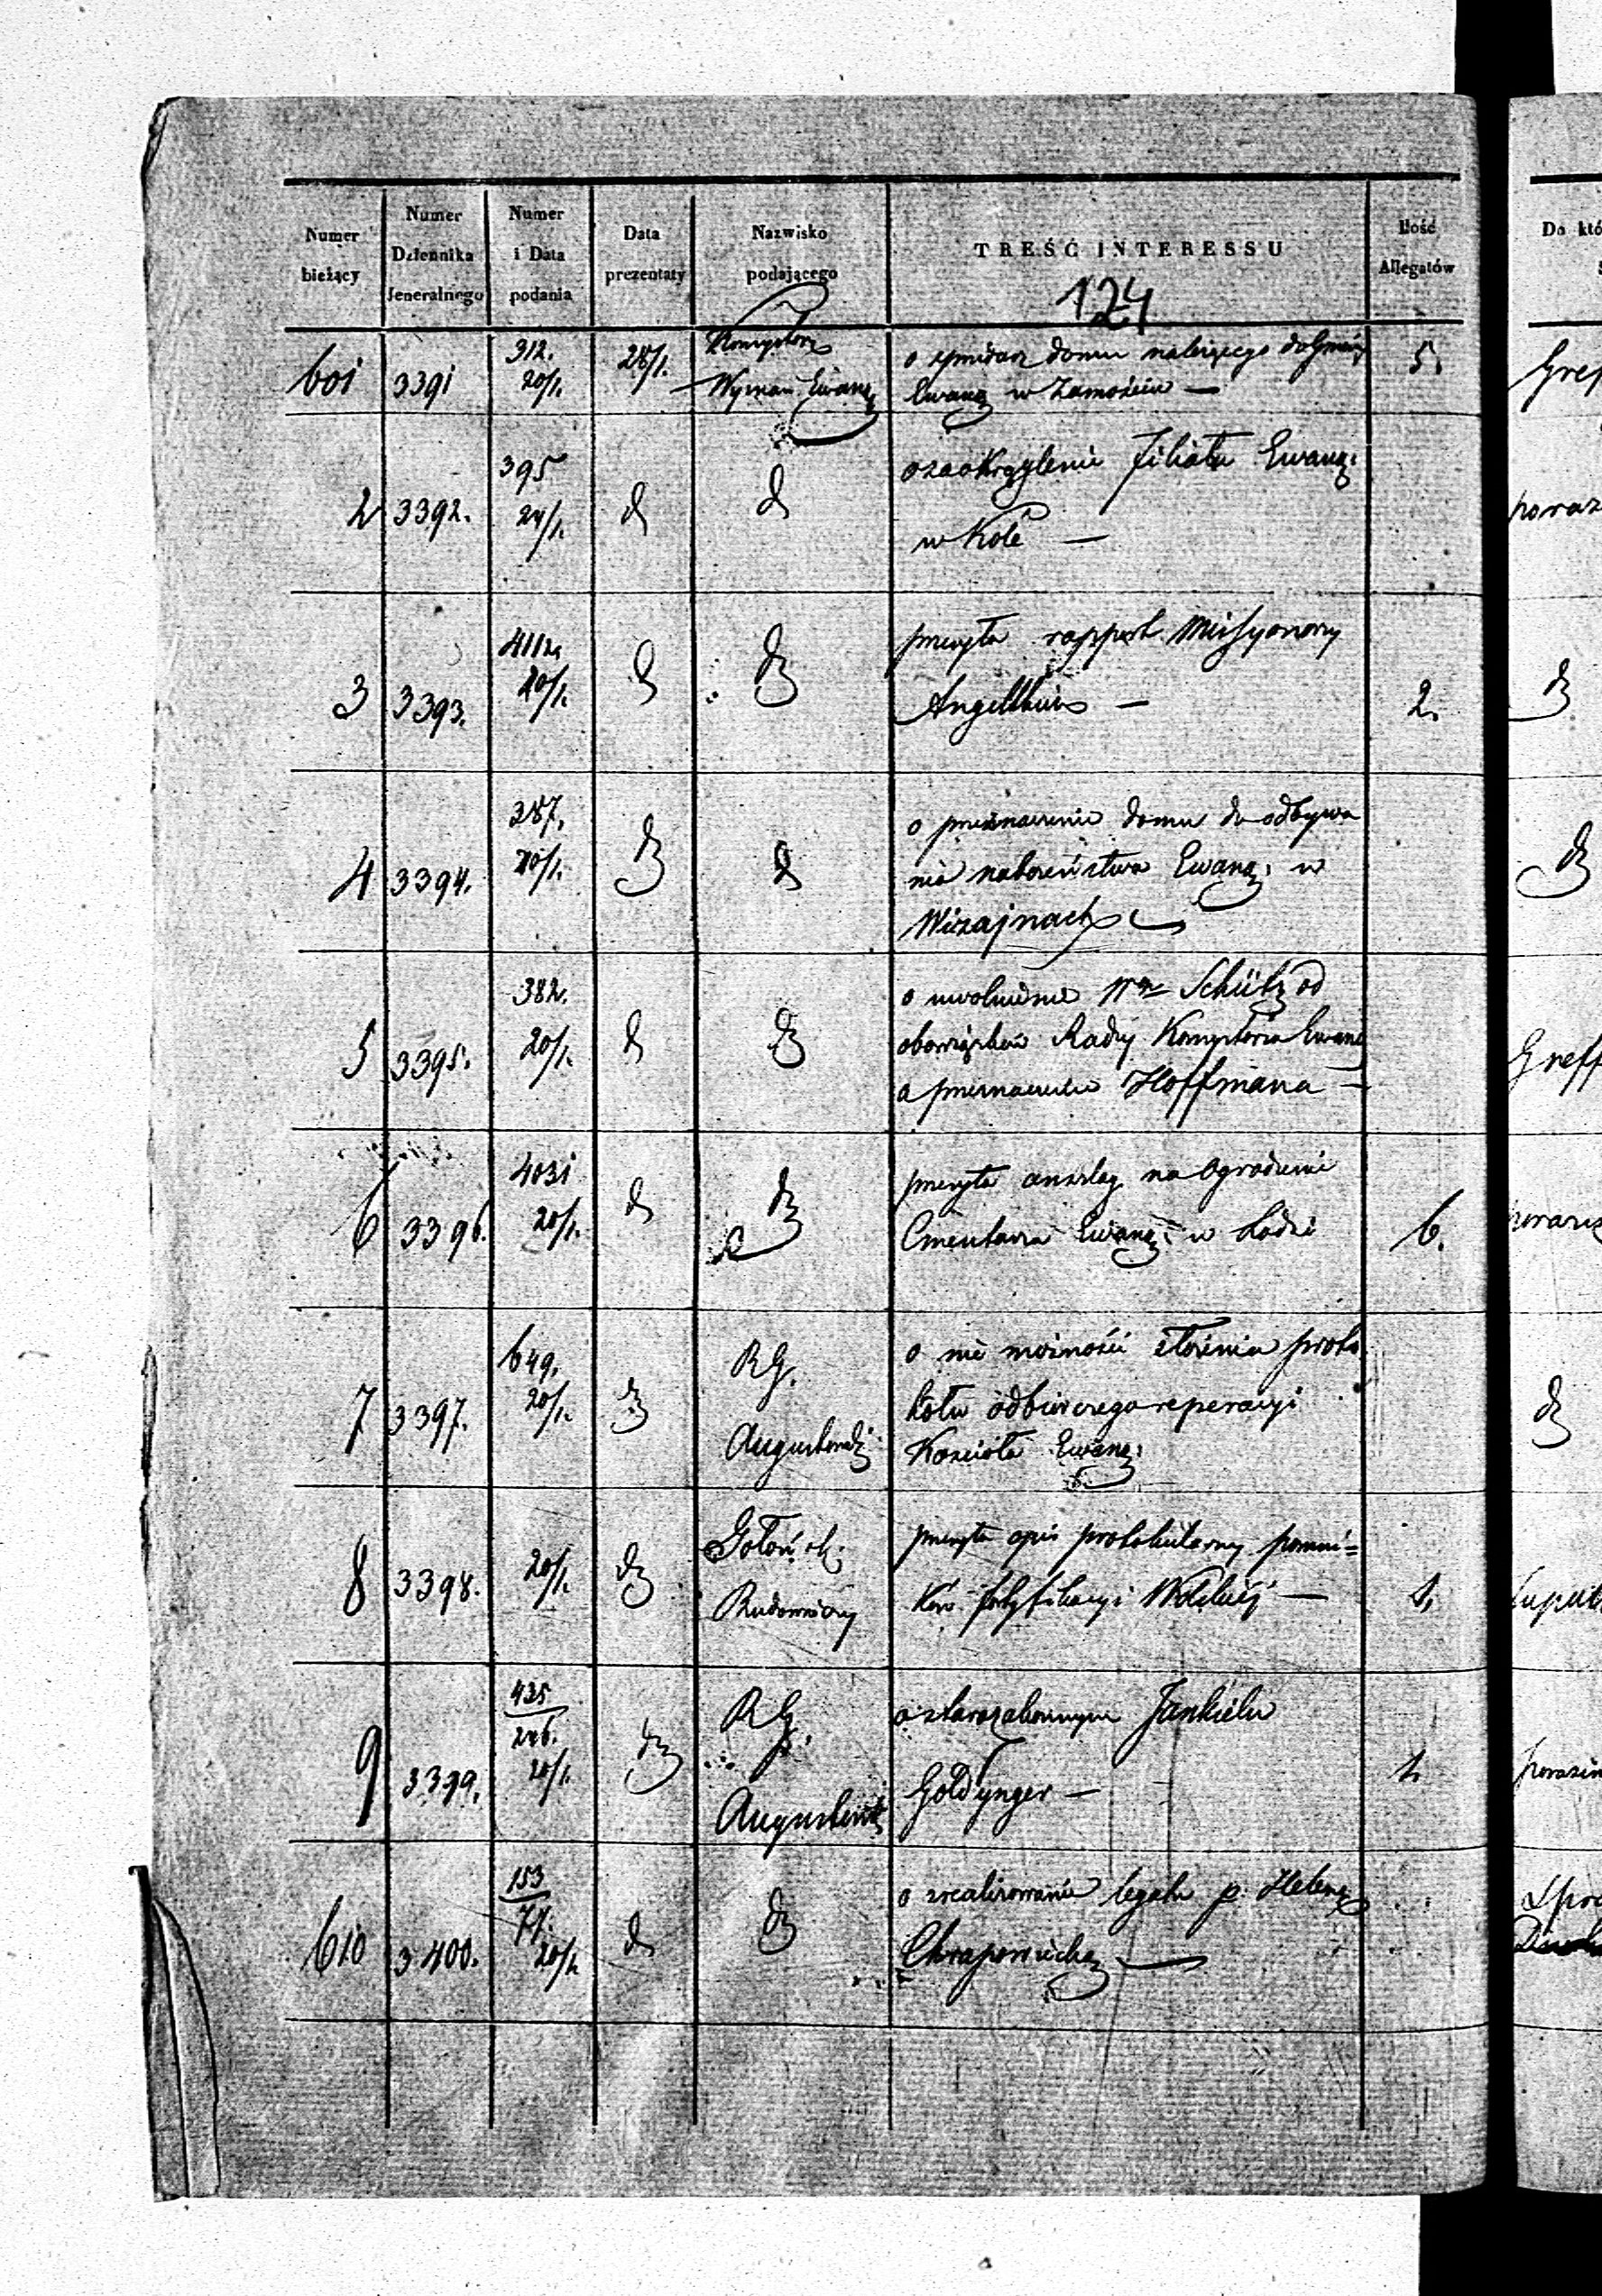 Numer bieżący
Numer Dziennika Jeneralnego
Numer i Data podania
Data prezentaty
Nazwisko podającego
TREŚĆ INTERESSU
Ilość Allegatów
Do któ
124
601 3391 312. 20/1. 28/1. Konsystorz
Wyznań Ewang. o domu należącego do Gminy
Ewang w Zamościu — 5.
Gref
2 3392. 395 24/1. d d o zaokrąglenie Filiału Ewang:
w Kole —
3 3393. 4112. 20/1. d d przesyła rapport Missyonarza
— 2.
d
4 3394. 387. 20/1. d d o przeznaczenie domu do odbywa
nia nabożeństwa Ewang: w
Wizajnach
d
5 3395. 382. 20/1. d d o uwolnienie Wgo Schütz od
obowiązków Radzy Konsystorza Ewang
a przeznaczenie Hoffmana —
Greff
6 3396. 4031 20/1. d d przesyła anszlag na Ogrodzenie
Cmentarza Ewang: w Łodzi 6.
7 3397. 649. 20/1. d RG.
Augustowski o nie możności złożenia proto
kołu odbiorczego reperacyi
Kościoła Ewang:
d
8 3398. 20/1. d Gołońsk:
Budowniczy przesyła opis protokularny pomni=
ków fortyfikacyi Wolskiéj — 1.
9 3399. 435 246. 20/1. d RG.
Augustowski o starozakonnym Jankielu
Goldynger — 1.
610 3400. 153 77. 20/1. d d o zrealizowanie legatu p. Helenę
Chrapowicką —